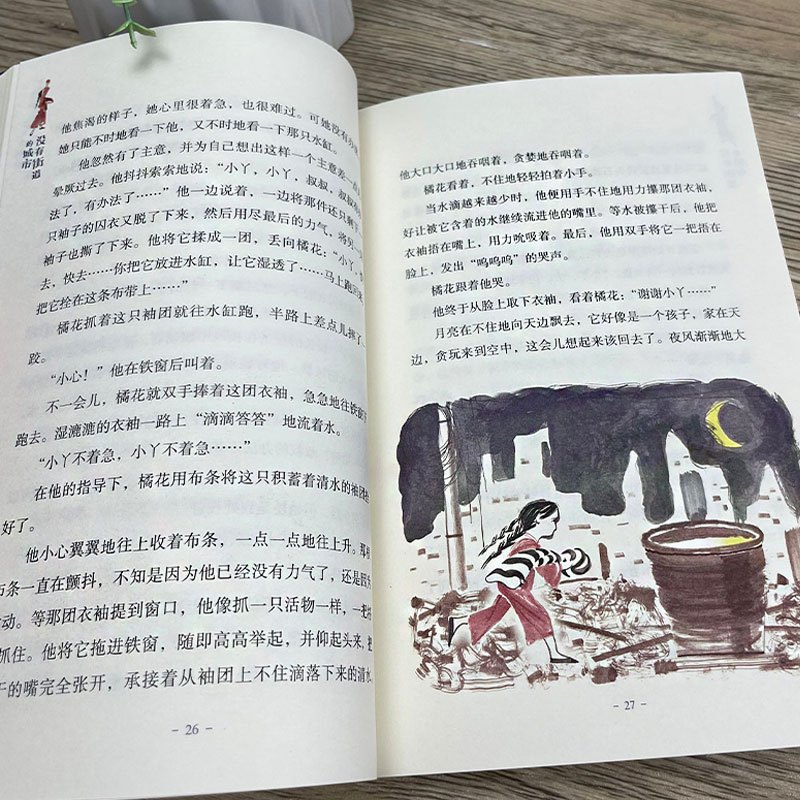 没有街道
的城市
他焦渴的样子，她心里很着急，也很难过。可她没有办
她只能不时地看一下他，又不时地看一下那只水缸。
他忽然有了主意，并为自己想出这样一个主意差一点
晕厥过去。他抖抖索索地说：“小丫，小丫，叔叔，叔叔有
法了，有办法了……”他一边说着，一边将那件还只剩下
只袖子的囚衣又脱了下来，然后用尽最后的力气，将另一
袖子也撕了下来。他将它揉成一团，丢向橘花：“小丫，
去，快去……你把它放进水缸，让它湿透了……马上跑回来
把它拴在这条布带上……”
橘花抓着这只袖团就往水缸跑，半路上差点儿摔了
跤。
“小心！”他在铁窗后叫着。
不一会儿，橘花就双手捧着这团衣袖，急急地往铁窗下
跑去。湿漉漉的衣袖一路上“滴滴答答”地流着水。
“小丫不着急，小丫不着急……”
在他的指导下，橘花用布条将这只积蓄着清水的袖团
好了。
他小心翼翼地往上收着布条，一点一点地往上升。那
布条一直在颤抖，不知是因为他已经没有力气了，还是因为
动。等那团衣袖提到窗口，他像抓一只活物一样，一把
抓住。他将它拖进铁窗，随即高高举起，并仰起头来，把
干的嘴完全张开，承接着从袖团上不住滴落下来的清水，
- 26 -
他大口大口地吞咽着，贪婪地吞咽着。
橘花看着，不住地轻轻拍着小手。
当水滴越来越少时，他便用手不住地用力攥那团衣袖，
好让被它含着的水继续流进他的嘴里。等水被攥干后，他把
衣袖捂在嘴上，用力吮吸着。最后，他用双手将它一把捂在
脸上，发出“呜呜呜”的哭声。
橘花跟着他哭。
他终于从脸上取下衣袖，看着橘花：“谢谢小丫……”
月亮在不住地向天边飘去，它好像是一个孩子，家在天
边，贪玩来到空中，这会儿想起来该回去了。夜风渐渐地大
- 27 -